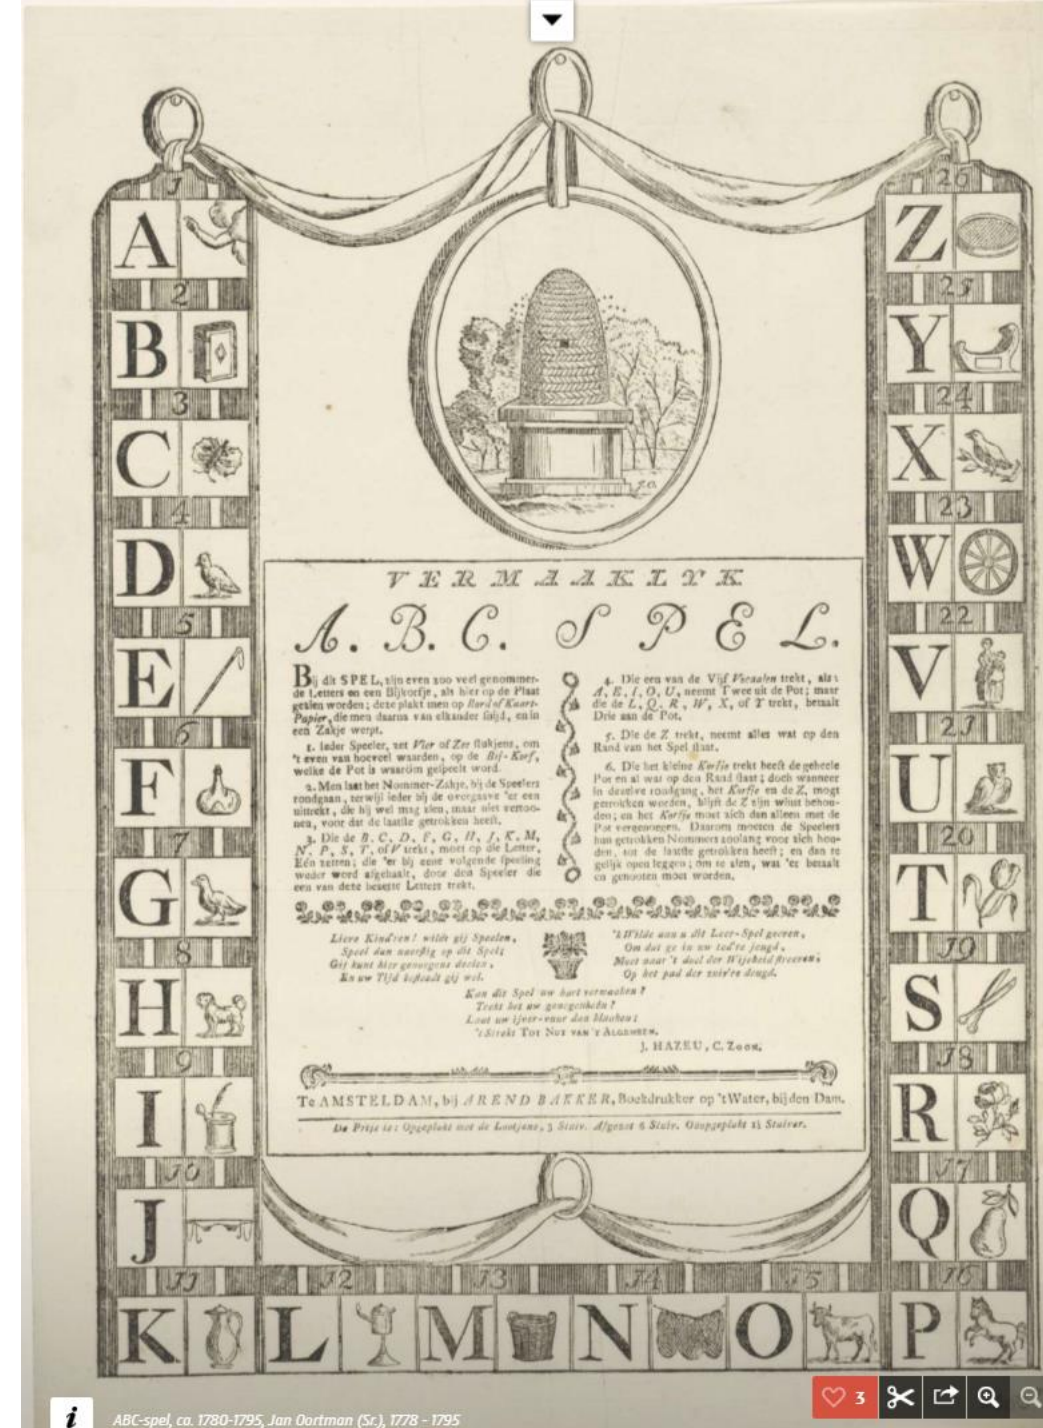 1
A
2
B
3
C
4
D
5
E
6
F
7
G
8
H
9
I
10
J
11
K
12
L
13
M
14
N
15
O
16
P
17
Q
18
R
19
S
20
T
21
U
22
V
23
W
24
X
25
Y
26
Z
J.O.
VERMAAKLYK
A. B. C. SPEL.
Bij dit SPEL, zijn even zoo veel genommer-
de Letters en een Bijkorfje, als hier op de Plaat
gezien worden; deze plakt men op Bord of Kaart-
Papier, die men daarna van elkander snijd, en in
een Zakje werpt.
1. Ieder Speeler, zet Vier of Zes stukjens, om
't even van hoeveel waarden, op de Bij-Korf,
welke de Pot is waarom gespeelt word.
2. Men laat het Nommer-Zakje, bij de Speelers
rondgaan, terwijl ieder bij de overgaave 'er een
uittrekt, die hij wel mag zien, maar niet vertoo-
nen, voor dat de laatste getrokken heeft.
3. Die de B, C, D, F, G, H, J, K, M,
N, P, S, T, of V trekt, moet op die Letter,
Eén zetten; die 'er bij eene volgende speeling
weder word afgehaalt, door den Speeler die
een van deze bezette Letters trekt.
4. Die een van de Vijf Vocaalen trekt, als:
A, E, I, O, U, neemt Twee uit de Pot; maar
die de L, Q, R, W, X, of Y trekt, betaalt
Drie aan de Pot.
5. Die de Z trekt, neemt alles wat op den
Rand van het Spel staat.
6. Die het kleine Korfje trekt heeft de geheele
Pot en al wat op den Rand staat; doch wanneer
in dezelve rondgang, het Korfje en de Z, mogt
getrokken worden, blijft de Z zijn winst behou-
den; en het Korfje moet zich dan alleen met de
Pot vergenoegen. Daarom moeten de Speelers
hun getrokken Nommers zoolang voor zich hou-
den, tot de laatste getrokken heeft; en dan te
gelijk open leggen; om te zien, wat 'er betaalt
en genooten moet worden.
Lieve Kind'ren! wilde gij Speelen,
Speel dan naarstig op dit Spel;
Gij kunt hier genoegens deelen,
En uw Tijd besteedt gij wel.
'k Wilde aan u dit Leer-Spel geeven,
Om dat ge in uw teed're jeugd,
Moet naar 't doel der Wijsheid streeven,
Op het pad der zuiv're deugd.
Kan dit Spel uw hart vermaaken?
Trekt het uw genegenheên?
Laat uw ijver-vuur dan blaaken;
't Strekt TOT NUT VAN 'T ALGEMEEN.
J. HAZEU, C. ZOON.
Te AMSTELDAM, bij AREND BAKKER, Boekdrukker op 't Water, bij den Dam.
De Prijs is: Opgeplakt met de Lootjens, 3 Stuiv. Afgezet 6 Stuiv. Onopgeplakt 1½ Stuiver.
3
i
ABC-spel, ca. 1780-1795, Jan Oortman (Sr.), 1778 - 1795